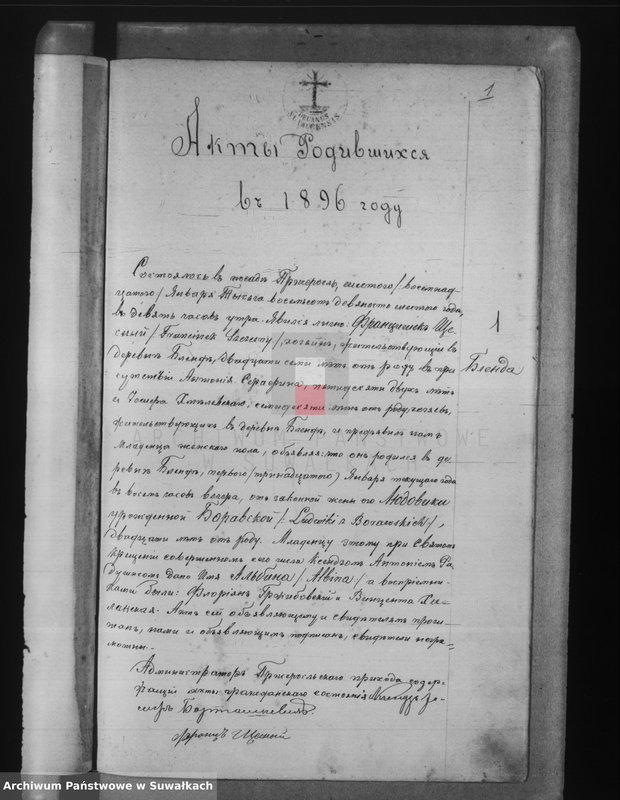 1
DECANUS
Акты Родившихся
въ 1896 году
1
Бленда
Состоялось въ посадѣ Пржеросль, шестого / восемнад-
цатого / Января Тысяча восемьсотъ девяносто шестого года,
въ девять часовъ утра. Явился лично: Францишекъ Ще-
сный / Franciszek Szczesny /, хозяинъ, жительствующій въ
деревнѣ Блендѣ, двадцати семи лѣтъ отъ роду въ при
сутствіи Антонія Серафина, пятидесяти двухъ лѣтъ
и Іосифа Хмѣлевскаго, семидесяти лѣтъ отъ роду, хозяевъ,
жительствующихъ въ деревнѣ Блендѣ, и предъявилъ намъ
Младенца женскаго пола, объявляя: что онъ родился въ де-
ревнѣ Блендѣ, первого / тринадцатого / Января текущаго года
въ восемь часовъ вечера, отъ законной жены его Людовики
урожденной Боравской /: Ludwiki z Borawskich /,
двадцати лѣтъ отъ роду. Младенцу этому при Святомъ
Крещеніи совершенномъ сего числа Ксендзомъ Антоніемъ Ра
душисомъ дано имя Альбина / Albina: / а воспріемни-
ками были: Флоріянъ Гржибовскій и Винцента
Актъ сей объявляющему и свидѣтелямъ прочи-
танъ, нами и объявляющимъ подписанъ, свидѣтели негра-
мотны.-
Администраторъ Пржеросльскаго прихода содер-
жащій акты гражданскаго состоянія Ксендзъ Іо-
сифъ Борташкевичъ.
Францъ Щесный
ARCHIWUM PAŃSTWOWE
W SUWAŁKACH
Archiwum Państwowe w Suwałkach